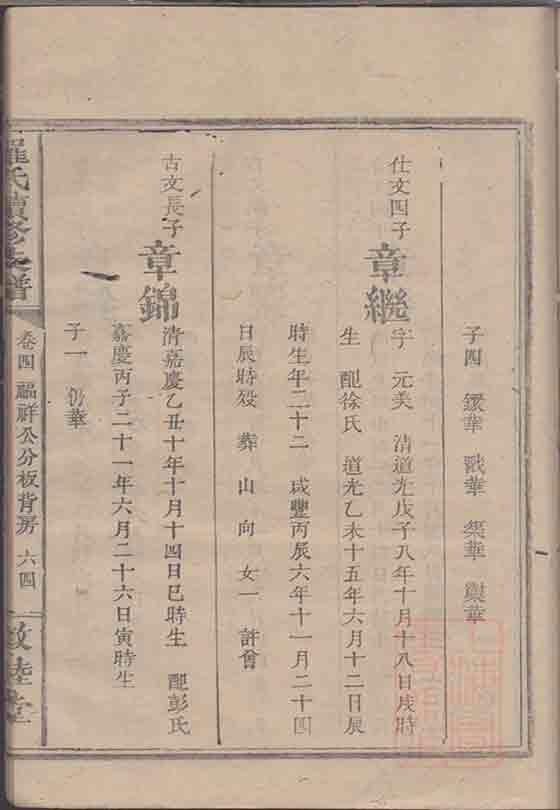 子四 鍰華 戩華 榘華 㰻華
仕文四子
章繼
字 元美 清道光戊子八年十月十八日戌時
生 配徐氏 道光乙未十五年六月十二日辰
時生年二十二 咸豐丙辰六年十一月二十四
日辰時殁 葬 山 向 女一 許曾
古文長子
章錦
清嘉慶乙丑十年十月十四日巳時生 配彭氏
嘉慶丙子二十一年六月二十六日寅時生
子一 礽華
羅氏續修支譜
卷四 福祥公分板背房 六四
敦睦堂